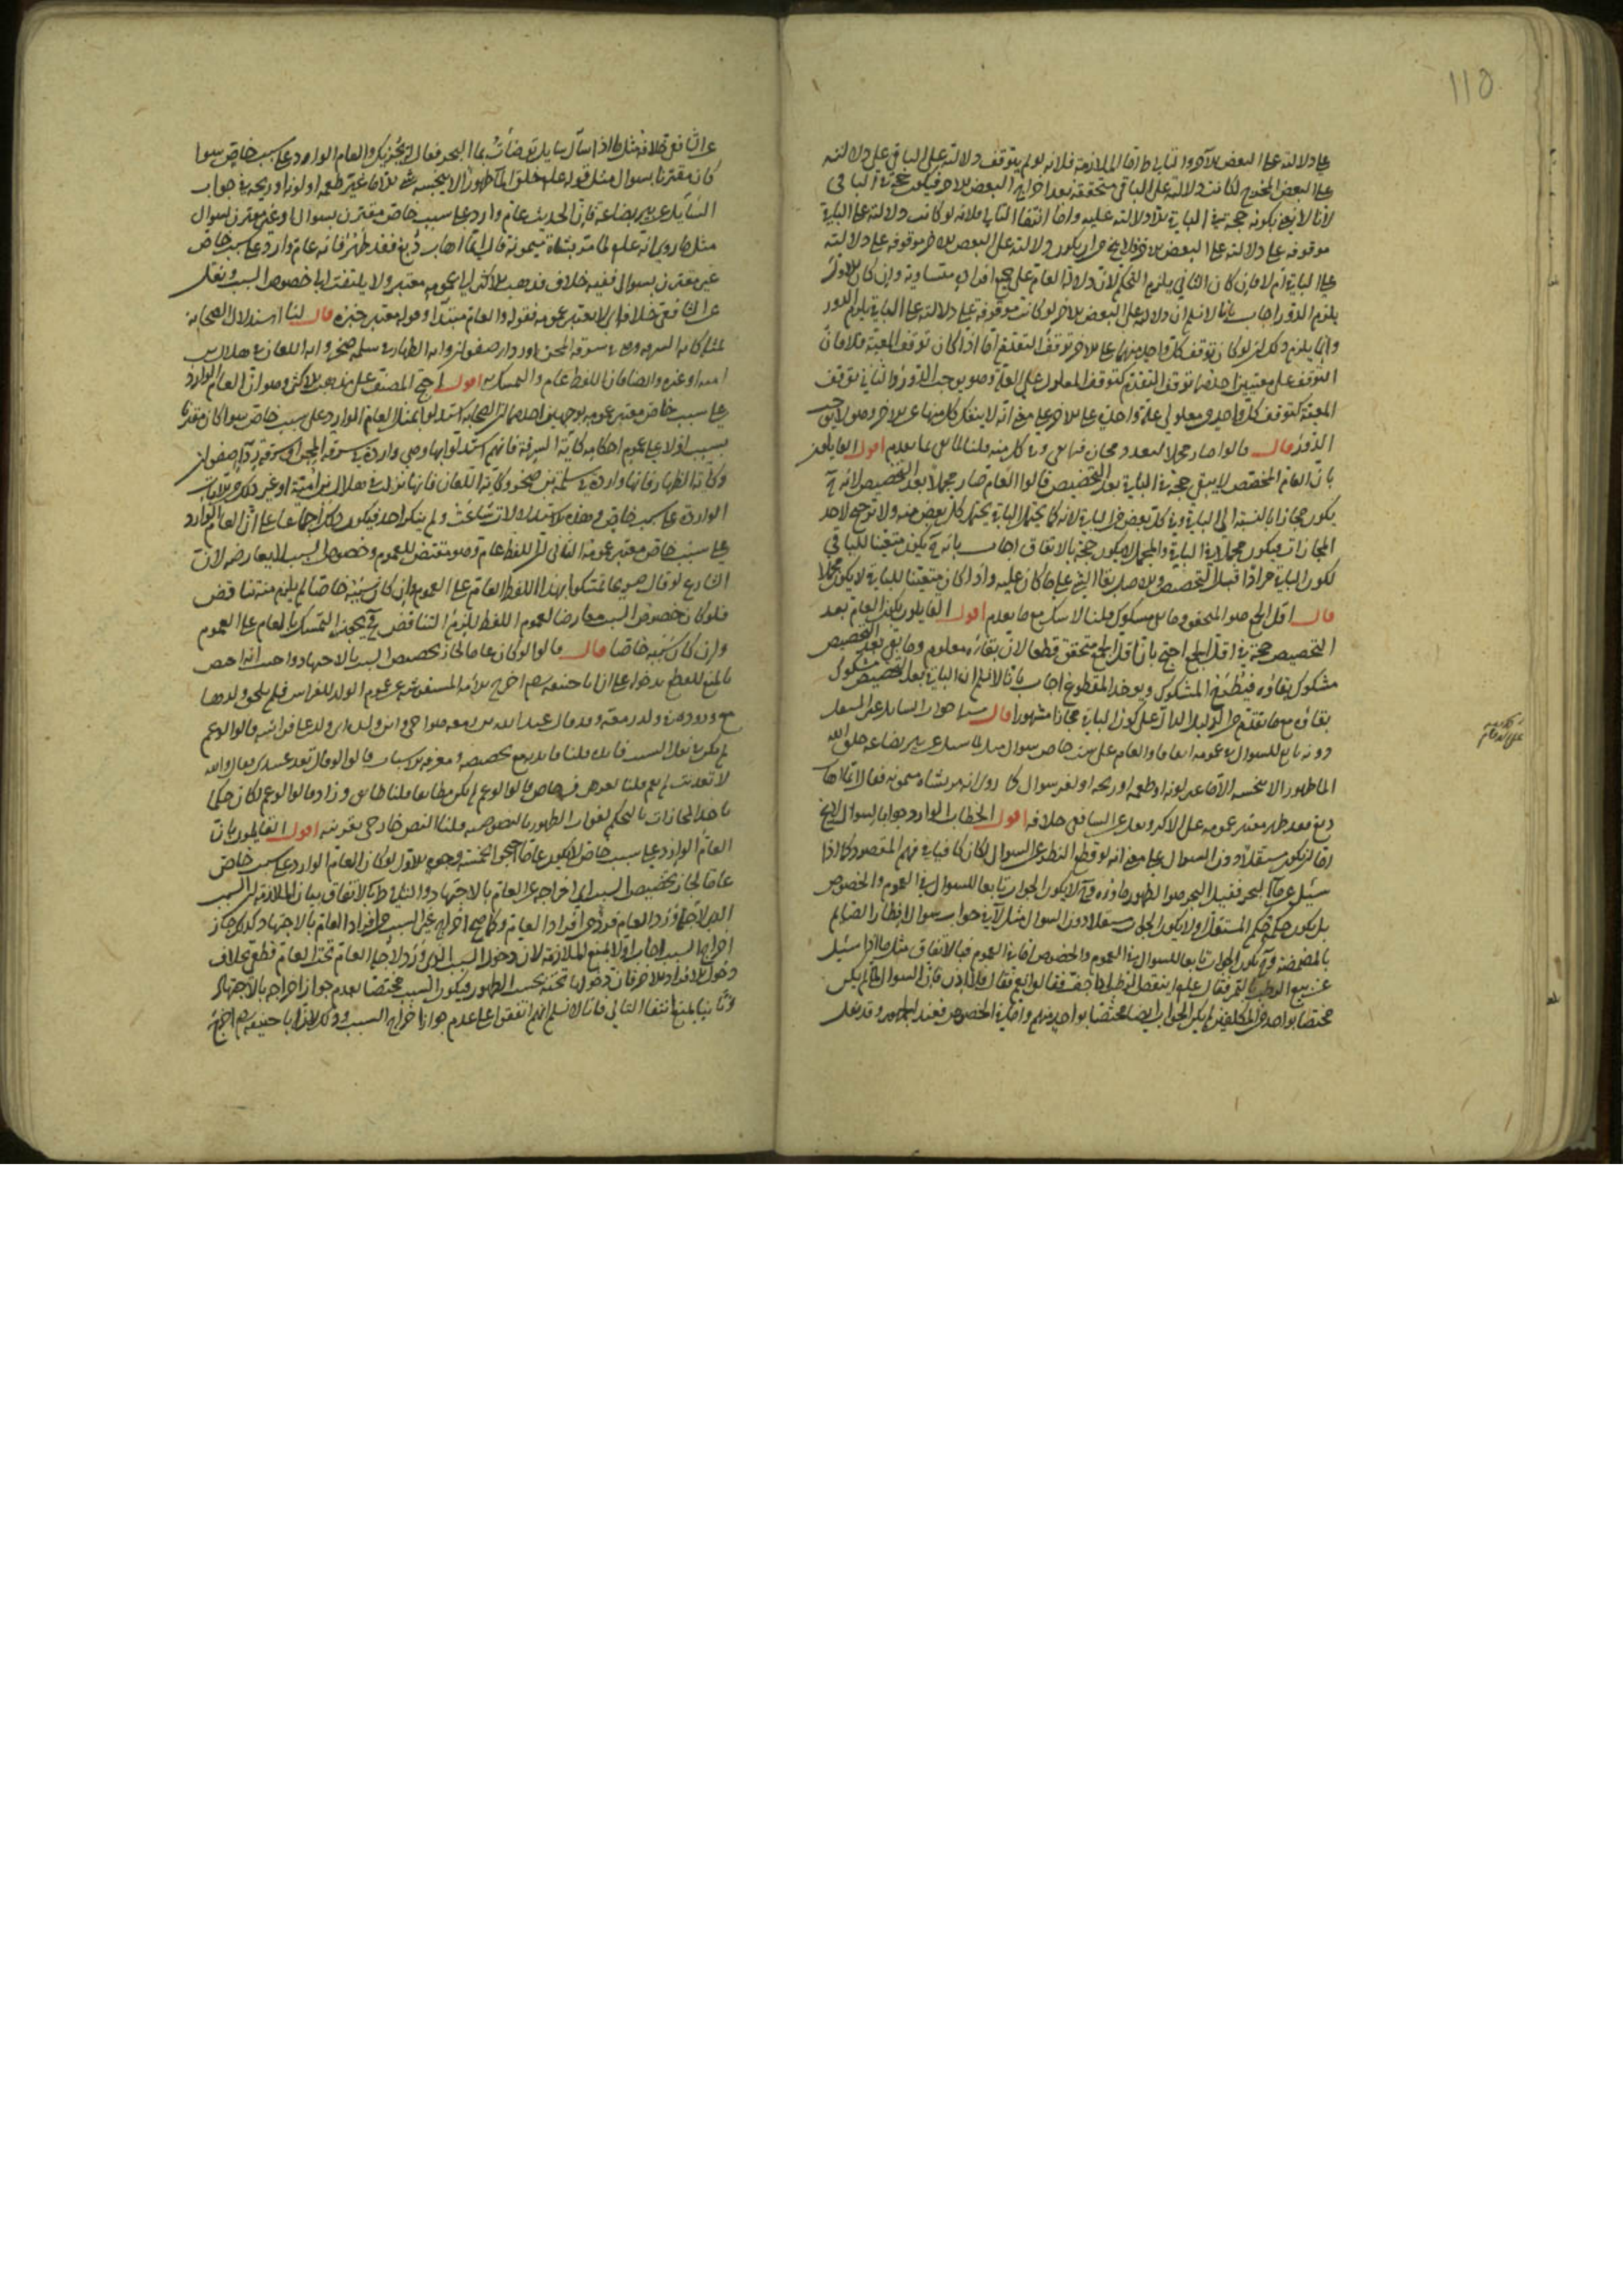 110
على دلالته على البعض الآخر والتالي باطل اما الملازمة فلانه لو لم يتوقف دلالته على الباقي على دلالته
على البعض المخرج لكانت دلالته على الباقي متحققة بعد اخراج البعض الاخر فيكون حجة في الباقي
لانا لا نعني بكونه حجة في الباقي الا دلالته عليه واما انتفا التالي فلانه لو كانت دلالته على الباقي
موقوفة على دلالته على البعض الاخر فلا يخ من ان يكون دلالته على البعض الاخر موقوفة على دلالته
على الباقي ام لا فان كان الثاني يلزم التحكم لان دلالة العام على جميع افراده متساوية وان كان الاول
يلزم الدور اجاب بانا لا نسلم ان دلالته على البعض الاخر لو كانت موقوفة على دلالته على الباقي يلزم الدور
وانما يلزم ذلك ان لو كان توقف كل واحد منهما على الاخر توقف التقدم اما اذا كان توقف المعية فلا فان
التوقف على معنيين احدهما توقف التقدم كتوقف المعلول على العلة وهو يوجب الدور والثاني توقف
المعية كتوقف كل واحد من معلولي علة واحدة على الاخر على معنى انه لا ينفك كل منهما عن الاخر وهو لا يوجب
الدور قال قالوا صار مجملا لتعدد مجازه فيما بقي وفي كل منه قلنا لما بقي بما تقدم اقول القايلون
بان العام المخصص لا يبقى حجة في الباقي بعد التخصيص قالوا العام صار مجملا بعد التخصيص لانه ح
يكون مجازا بالنسبة الى الباقي وفي كل بعض من الباقي لانه كما يحتمل الباقي يحتمل كل بعض منه ولا ترجيح لاحد
المجازات فيكون مجملا في الباقي والمجمل لا يكون حجة بالاتفاق اجاب بانه ح يكون متعينا للباقي
لكون الباقي مرادا قبل التخصيص والاصل بقا الشي على ما كان عليه واذا كان متعينا للباقي لا يكون مجملا
قال اقل الجمع هو المحقق وما بقي مشكوك قلنا لا شك مع ما تقدم اقول القايلون بكون العام بعد
التخصيص حجة في اقل الجمع احتج بان اقل الجمع متحقق قطعا لان بقاءه معلوم وما بقي بعد التخصيص
مشكوك بقاؤه فيطرح المشكوك ويوخذ المقطوع اجاب بانا لا نسلم ان الباقي بعد التخصيص مشكوك
بقاؤه مع ما تقدم من الدليل الدال على كون الباقي مجازا مشهورا قال مسئلة جواب السايل غير المستقل
دونه تابع للسوال في عمومه اتفاقا والعام على سبب خاص بسوال مثل لما سئل عن بير بضاعة خلق الله
الما طهورا لا ينجسه الا ما غير لونه او طعمه او ريحه او بغير سوال كما روي انه مر بشاة ميمونة فقال ايما اهاب
دبغ فقد طهر معتبر عمومه على الاكثر ونقل عن الشافعي خلافه اقول الخطاب الوارد جوابا لسوال لا يخ
اما ان يكون مستقلا دون السوال على معنى انه لو قطع النظر عن السوال لكان كافيا في فهم المقصود كما اذا
سئل عن ماء البحر فقيل البحر هو الطهور ماؤه وح لا يكون الجواب تابعا للسوال في العموم والخصوص
بل يكون حكمه حكم المستقل او لا يكون الجواب مستقلا دون السوال مثل لا في جواب سوال الافطار الصايم
بالمضمضة وح يكون الجواب تابعا للسوال في العموم والخصوص اما في العموم فبالاتفاق مثل ما اذا سئل
عن بيع الرطب بالتمر فقال علم اينقص الرطب اذا جف فقالوا نعم فقال فلا اذن فان السوال لما لم يكن
مختصا بواحد من المكلفين لم يكن الجواب ايضا مختصا بواحد منهم واما في الخصوص فعند الجمهور وقد نقل
عن الشافعي خلافه مثل ما اذا سال سايل توضات بماء البحر فقال يجزيك والعام الوارد على سبب خاص سوا
كان مقترنا بسوال مثل قوله علم خلق الماء طهورا لا ينجسه شي الا ما غير طعمه او لونه او ريحه في جواب
السايل عن بير بضاعة فان الحديث عام وارد على سبب خاص مقترن بسوال او غير مقترن بسوال
مثل ما روي انه علم لما مر بشاة ميمونة قال ايما اهاب دبغ فقد طهر فانه عام وارد على سبب خاص
غير مقترن بسوال ففيه خلاف فذهب الاكثر الى ان عمومه معتبر ولا يلتفت الى خصوص السبب ونقل
عن الشافعي خلافه اي لا يعتبر عمومه فقوله والعام مبتدا وقوله معتبر خبره قال لنا استدلال الصحابة
بمثله كآية السرقة وهي في سرقة المجن او رداء صفوان واية الظهار في سلمة بن صخر واية اللعان في هلال بن
امية او غيره وايضا فان اللفظ عام والتمسك به اقول احتج المصنف على مذهب الاكثر وهو ان العام الوارد
على سبب خاص معتبر عمومه بوجهين احدهما ان الصحابة استدلوا بمثل العام الوارد على سبب خاص سوا كان مقترنا
بسبب او لا على عموم احكامه كآية السرقة فانهم استدلوا بها وهي واردة في سرقة المجن او سرقة رداء صفوان
وكآية الظهار فانها واردة في سلمة بن صخر وكآية اللعان فانها نزلت في هلال بن امية او غير ذلك من الايات
الواردة على سبب خاص وهذه الاستدلالات شاعت ولم ينكر احد فيكون ذلك اجماعا على ان العام الوارد
على سبب خاص معتبر عمومه الثاني ان اللفظ عام وهو مقتض للعموم وخصوص السبب لا يعارضه لان
الشارع لو قال صريحا تمسكوا بهذا اللفظ العام على العموم وان كان سببه خاصا لم يلزم منه تناقض
فلو كان خصوص السبب معارضا لعموم اللفظ للزم التناقض ح فيجوز التمسك بالعام على العموم
وان كان سببه خاصا قال قالوا لو كان عاما لجاز تخصيص السبب بالاجتهاد واجيب بانه اختص
بالمنع للقطع بدخوله على ان ابا حنيفة رحمه اخرج الامة المستفرشة عن عموم الولد للفراش فلم يلحق ولدها
مع وروده في ولد زمعة وقد قال عبد الله بن زمعة هو اخي وابن وليدة ابي ولد على فراشه قالوا لو عم
لم يكن في نقل السبب فايدة قلنا فايدته منع تخصيصه ومعرفة الاسباب قالوا لو قال تغد عندي فقال والله
لا تغديت لم يعم قلنا لعرف خاص قالوا لو عم لم يكن مطابقا قلنا طابق وزاد قالوا لو عم لكان حكما
باحد المجازات بالتحكم لفوات الظهور بالنصوصية قلنا النص خارجي بقرينة اقول القايلون بان
العام الوارد على سبب خاص لا يكون عاما احتجوا بخمسة وجوه الاول لو كان العام الوارد على سبب خاص
عاما لجاز تخصيص السبب اي اخراجه عن العام بالاجتهاد والتالي باطل بالاتفاق بيان الملازمة ان السبب
الذي لاجله ورد العام فرد من افراد العام وكما صح اخراج غير السبب من افراد العام بالاجتهاد كذلك جاز
اخراج السبب اجاب اولا بمنع الملازمة لان دخول السبب الذي ورد لاجله العام تحت العام قطعي بخلاف
دخول الافراد الاخر فان دخولها تحته بحسب الظهور فيكون السبب مختصا بعدم جواز اخراجه بالاجتهاد
وثانيا بمنع انتفا التالي فانا لا نسلم انهم اتفقوا على عدم جواز اخراج السبب وذلك لان ابا حنيفة رحمه اخرج